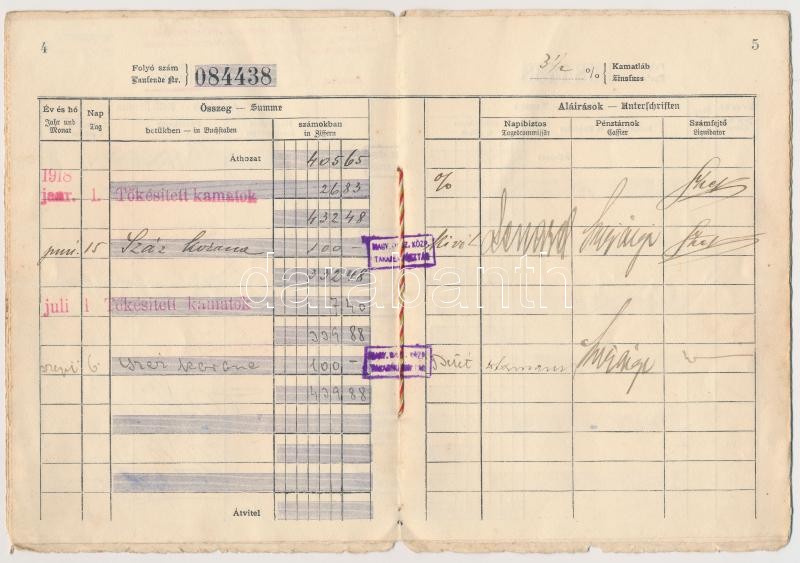 4
5
Folyó szám
Laufende Nr.
084438
3½ %
Kamatláb
Zinsfuss
Év és hó
Jahr und Monat
Nap
Tag
Összeg — Summe
betűkben — in Buchstaben
számokban
in Ziffern
Aláírások — Unterschriften
Napibiztos
Tagescommissär
Pénztárnok
Cassier
Számfejtő
Liquidator
Áthozat
405 65
1918
%
jan. 1. Tőkésített kamatok 26 83
432 48
juni. 15 Száz korona 100 –
332 48
juli 1 Tőkésített kamatok 7 40
339 88
szept 6 száz korona 100 –
439 88
Átvitel
MAGY. KÖZP.
TAKARÉKPÉNZTÁR
darabanth